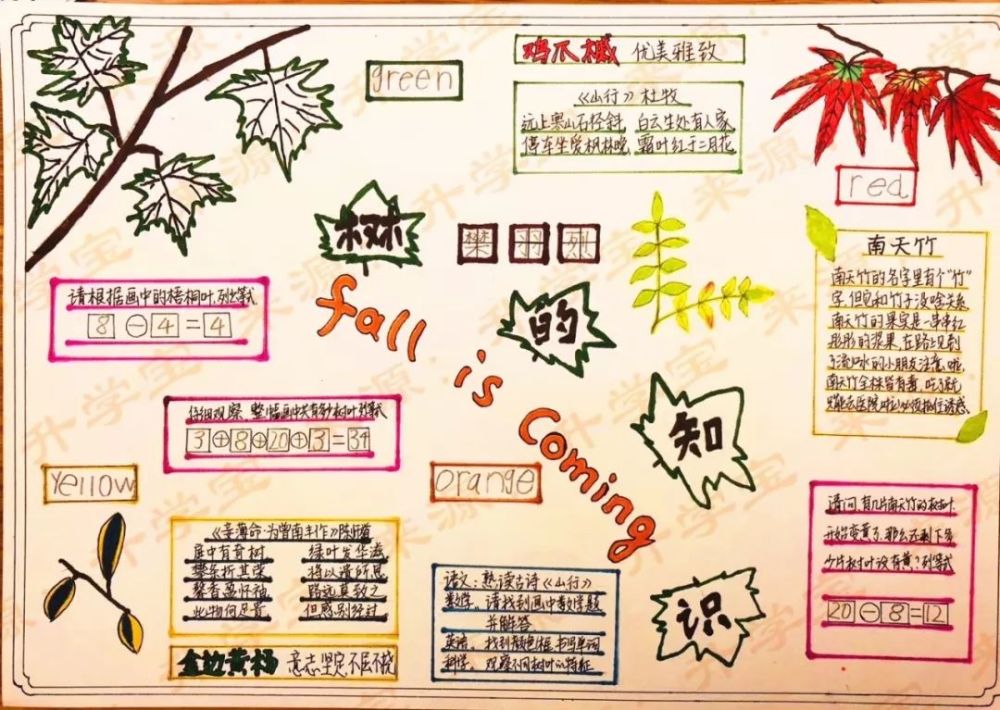 green
鸡爪槭 优美雅致
《山行》杜牧
远上寒山石径斜 白云生处有人家
停车坐爱枫林晚 霜叶红于二月花
red
树
樊 羽 烈
的
知
识
fall is Coming
南天竹
南天竹的名字里有个“竹”
字,但它和竹子没啥关系
南天竹的果实是一串串红
彤彤的浆果,在路上见到
了流口水的小朋友注意啦,
南天竹全株皆有毒,吃了就
请根据画中的梧桐叶,列出算式
8-4=4
仔细观察,整幅画中共有多少树叶列算式
3+8+20+3=34
yellow
orange
请问,有几片南天竹的树叶
开始变黄了,那么还剩下多
少片树叶没有黄?列算式
20-8=12
《妾薄命·为曾南丰作》陈师道
庭中有奇树 绿叶发华滋
攀条折其荣 将以遗所思
馨香盈怀袖 路远莫致之
此物何足贵 但感别经时
金边黄杨 意志坚定,不屈不挠
语文:熟读古诗《山行》
数学:请找到画中数学题
并解答
英语:找到颜色框,书写单词
科学:观察不同树叶的特征
升学宝 来源